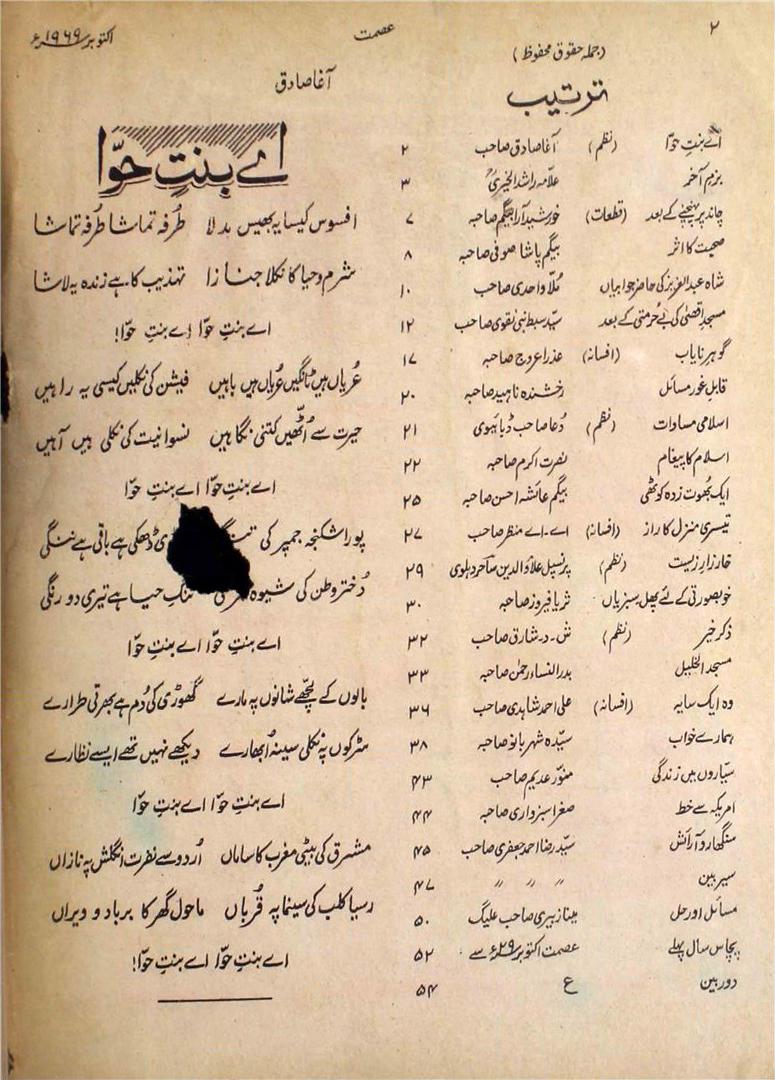 ۲
عصمت
اکتوبر ۱۹۶۹ء
(جملہ حقوق محفوظ)
ترتیب
اے بنتِ حوّا (نظم) آغا صادق صاحب ۲
بزمِ آخر علامہ راشد الخیریؒ ۳
چاند پر پہنچنے کے بعد (قطعات) خورشید آرا بیگم صاحبہ ۷
صحبت کا اثر بیگم پاشا صوفی صاحبہ ۸
شاہ عبدالعزیز کی حاضر جوابیاں مُلّا واحدی صاحب ۱۰
مسجدِ اقصیٰ کی بے حُرمتی کے بعد سیّد سبطِ نبی نقوی صاحب ۱۲
گوہرِ نایاب (افسانہ) عذرا عروج صاحبہ ۱۷
قابلِ غور مسائل رخشندہ ناہید صاحبہ ۲۰
اسلامی مساوات (نظم) دُعا صاحب ڈبائیوی ۲۱
اسلام کا پیغام نصرت اکرم صاحبہ ۲۲
ایک بھُوت زدہ کوٹھی بیگم عائشہ احسن صاحبہ ۲۵
تیسری منزل کا راز (افسانہ) اے۔اے منظر صاحب ۲۷
خارزارِ زیست (نظم) پرنسپل علاؤ الدین ساحر دہلوی ۲۹
خوبصورتی کے لئے پھل سبزیاں ثریا فیروز صاحبہ ۳۰
ذکرِ خیر (نظم) ش۔د۔شارق صاحب ۳۲
مسجد الخلیل بدرالنساء رحمٰن صاحبہ ۳۳
وہ ایک سایہ (افسانہ) علی احمد شاہدی صاحب ۳۶
ہمارے خواب سیّدہ شہر بانو صاحبہ ۳۸
سیّاروں میں زندگی منوّر عدیم صاحب ۴۳
امریکہ سے خط صغرا سبزواری صاحبہ ۴۴
سنگھار و آرائش سیّد رضا احمد جعفری صاحب ۴۵
سیربین " " " ۴۷
مسائل اور حل مینا زبیری صاحب علیگ ۵۰
پچاس سال پہلے عصمت اکتوبر ۲۹ء سے ۵۲
دوربین ع ۵۴
آغا صادق
اے بنتِ حوّا
افسوس کیسا یہ بھیس بدلا طُرفہ تماشا طُرفہ تماشا
شرم و حیا کا نکلا جنازا تہذیب کا ہے زندہ یہ لاشا
اے بنتِ حوّا اے بنتِ حوّا!
عُریاں ہیں ٹانگیں عُریاں ہیں باہیں فیشن کی نکلیں کیسی یہ راہیں
حیرت سے اُٹّھیں کتنی نگاہیں نسوانیت کی نکلی ہیں آہیں
اے بنتِ حوّا اے بنتِ حوّا
پورا شکنجہ جمپر کی ڈھکی ہے باقی ہے ننگی
دُختر وطن کی شیوہ حیا ہے تیری دو رنگی
اے بنتِ حوّا اے بنتِ حوّا
بالوں کے لچّھے شانوں پہ مارے گھوڑی کی دُم ہے بھرتی طرارے
سڑکوں پہ نکلی سینہ اُبھارے دیکھے نہیں تھے ایسے نظارے
اے بنتِ حوّا اے بنتِ حوّا
مشرق کی بیٹی مغرب کا ساماں اُردو سے نفرت انگلش پہ نازاں
رسیا کلب کی سینما پہ قُرباں ماحول گھر کا برباد و ویراں
اے بنتِ حوّا اے بنتِ حوّا!